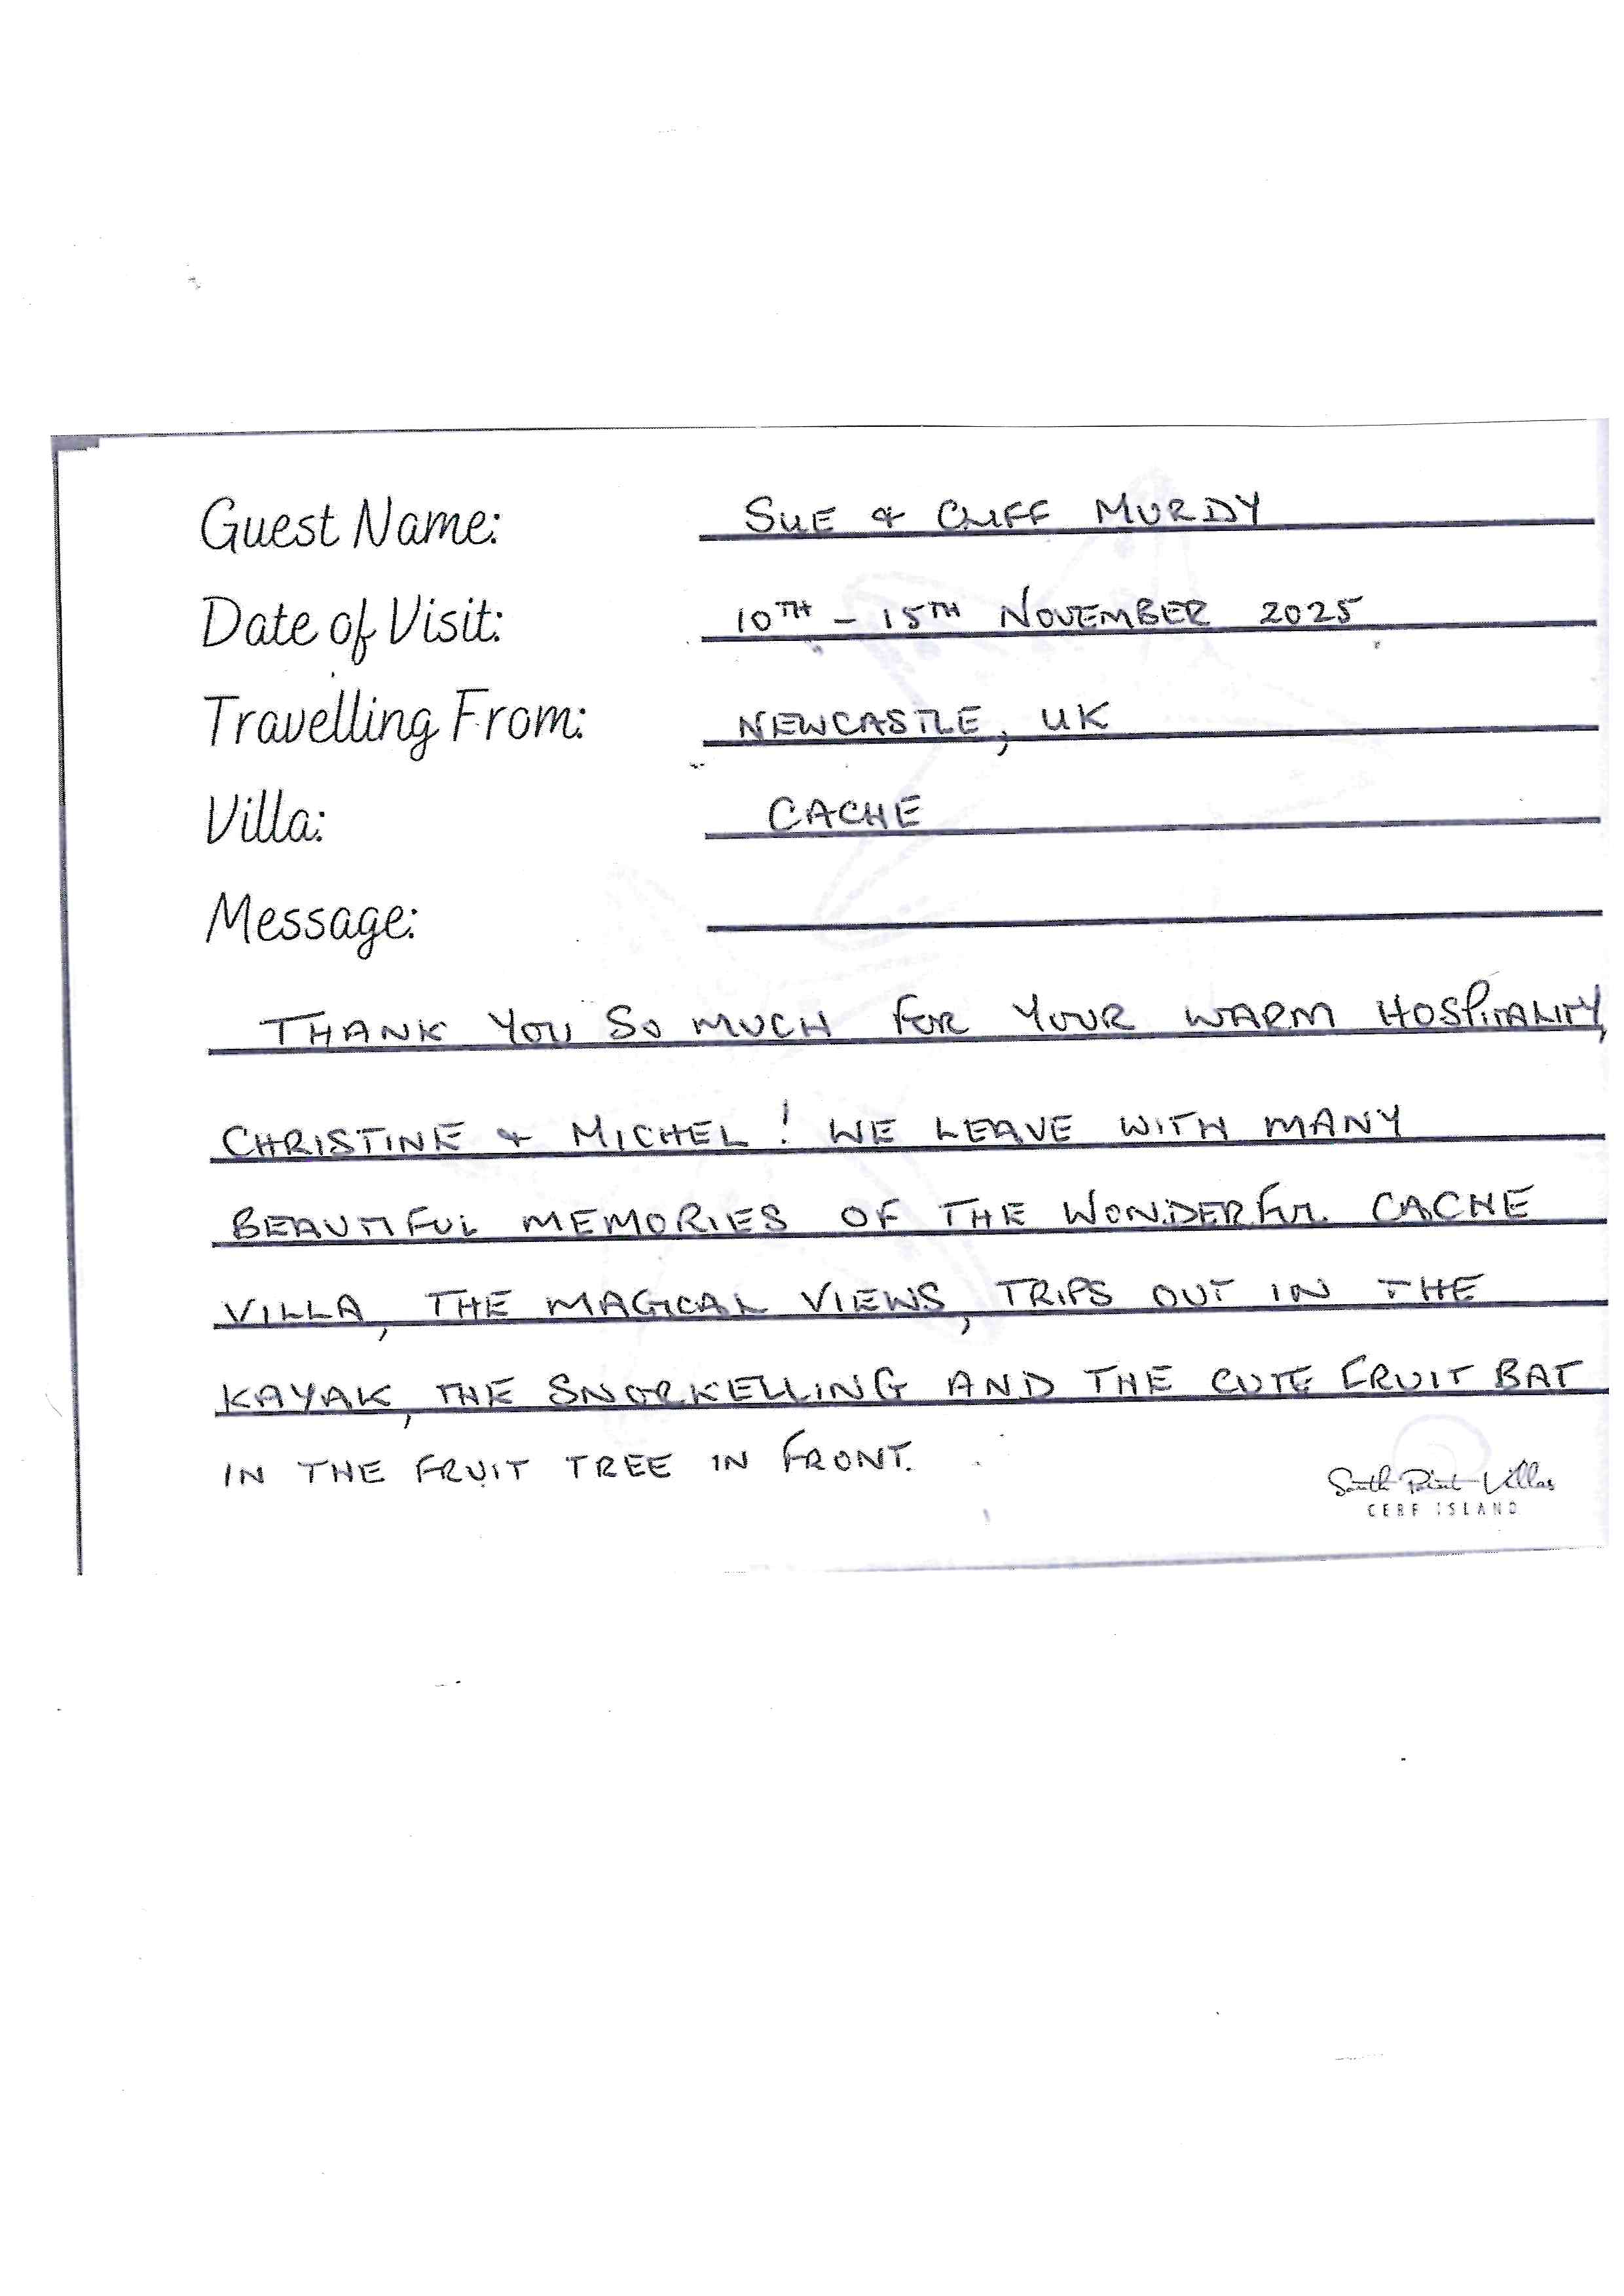 Guest Name: SUE & CLIFF MURDY
Date of Visit: 10TH - 15TH NOVEMBER 2025
Travelling From: NEWCASTLE, UK
Villa: CACHE
Message:
THANK YOU SO MUCH FOR YOUR WARM HOSPITALITY,
CHRISTINE & MICHEL! WE LEAVE WITH MANY
BEAUTIFUL MEMORIES OF THE WONDERFUL CACHE
VILLA, THE MAGICAL VIEWS, TRIPS OUT IN THE
KAYAK, THE SNORKELLING AND THE CUTE FRUIT BAT
IN THE FRUIT TREE IN FRONT.
South Point Villas
CERF ISLAND